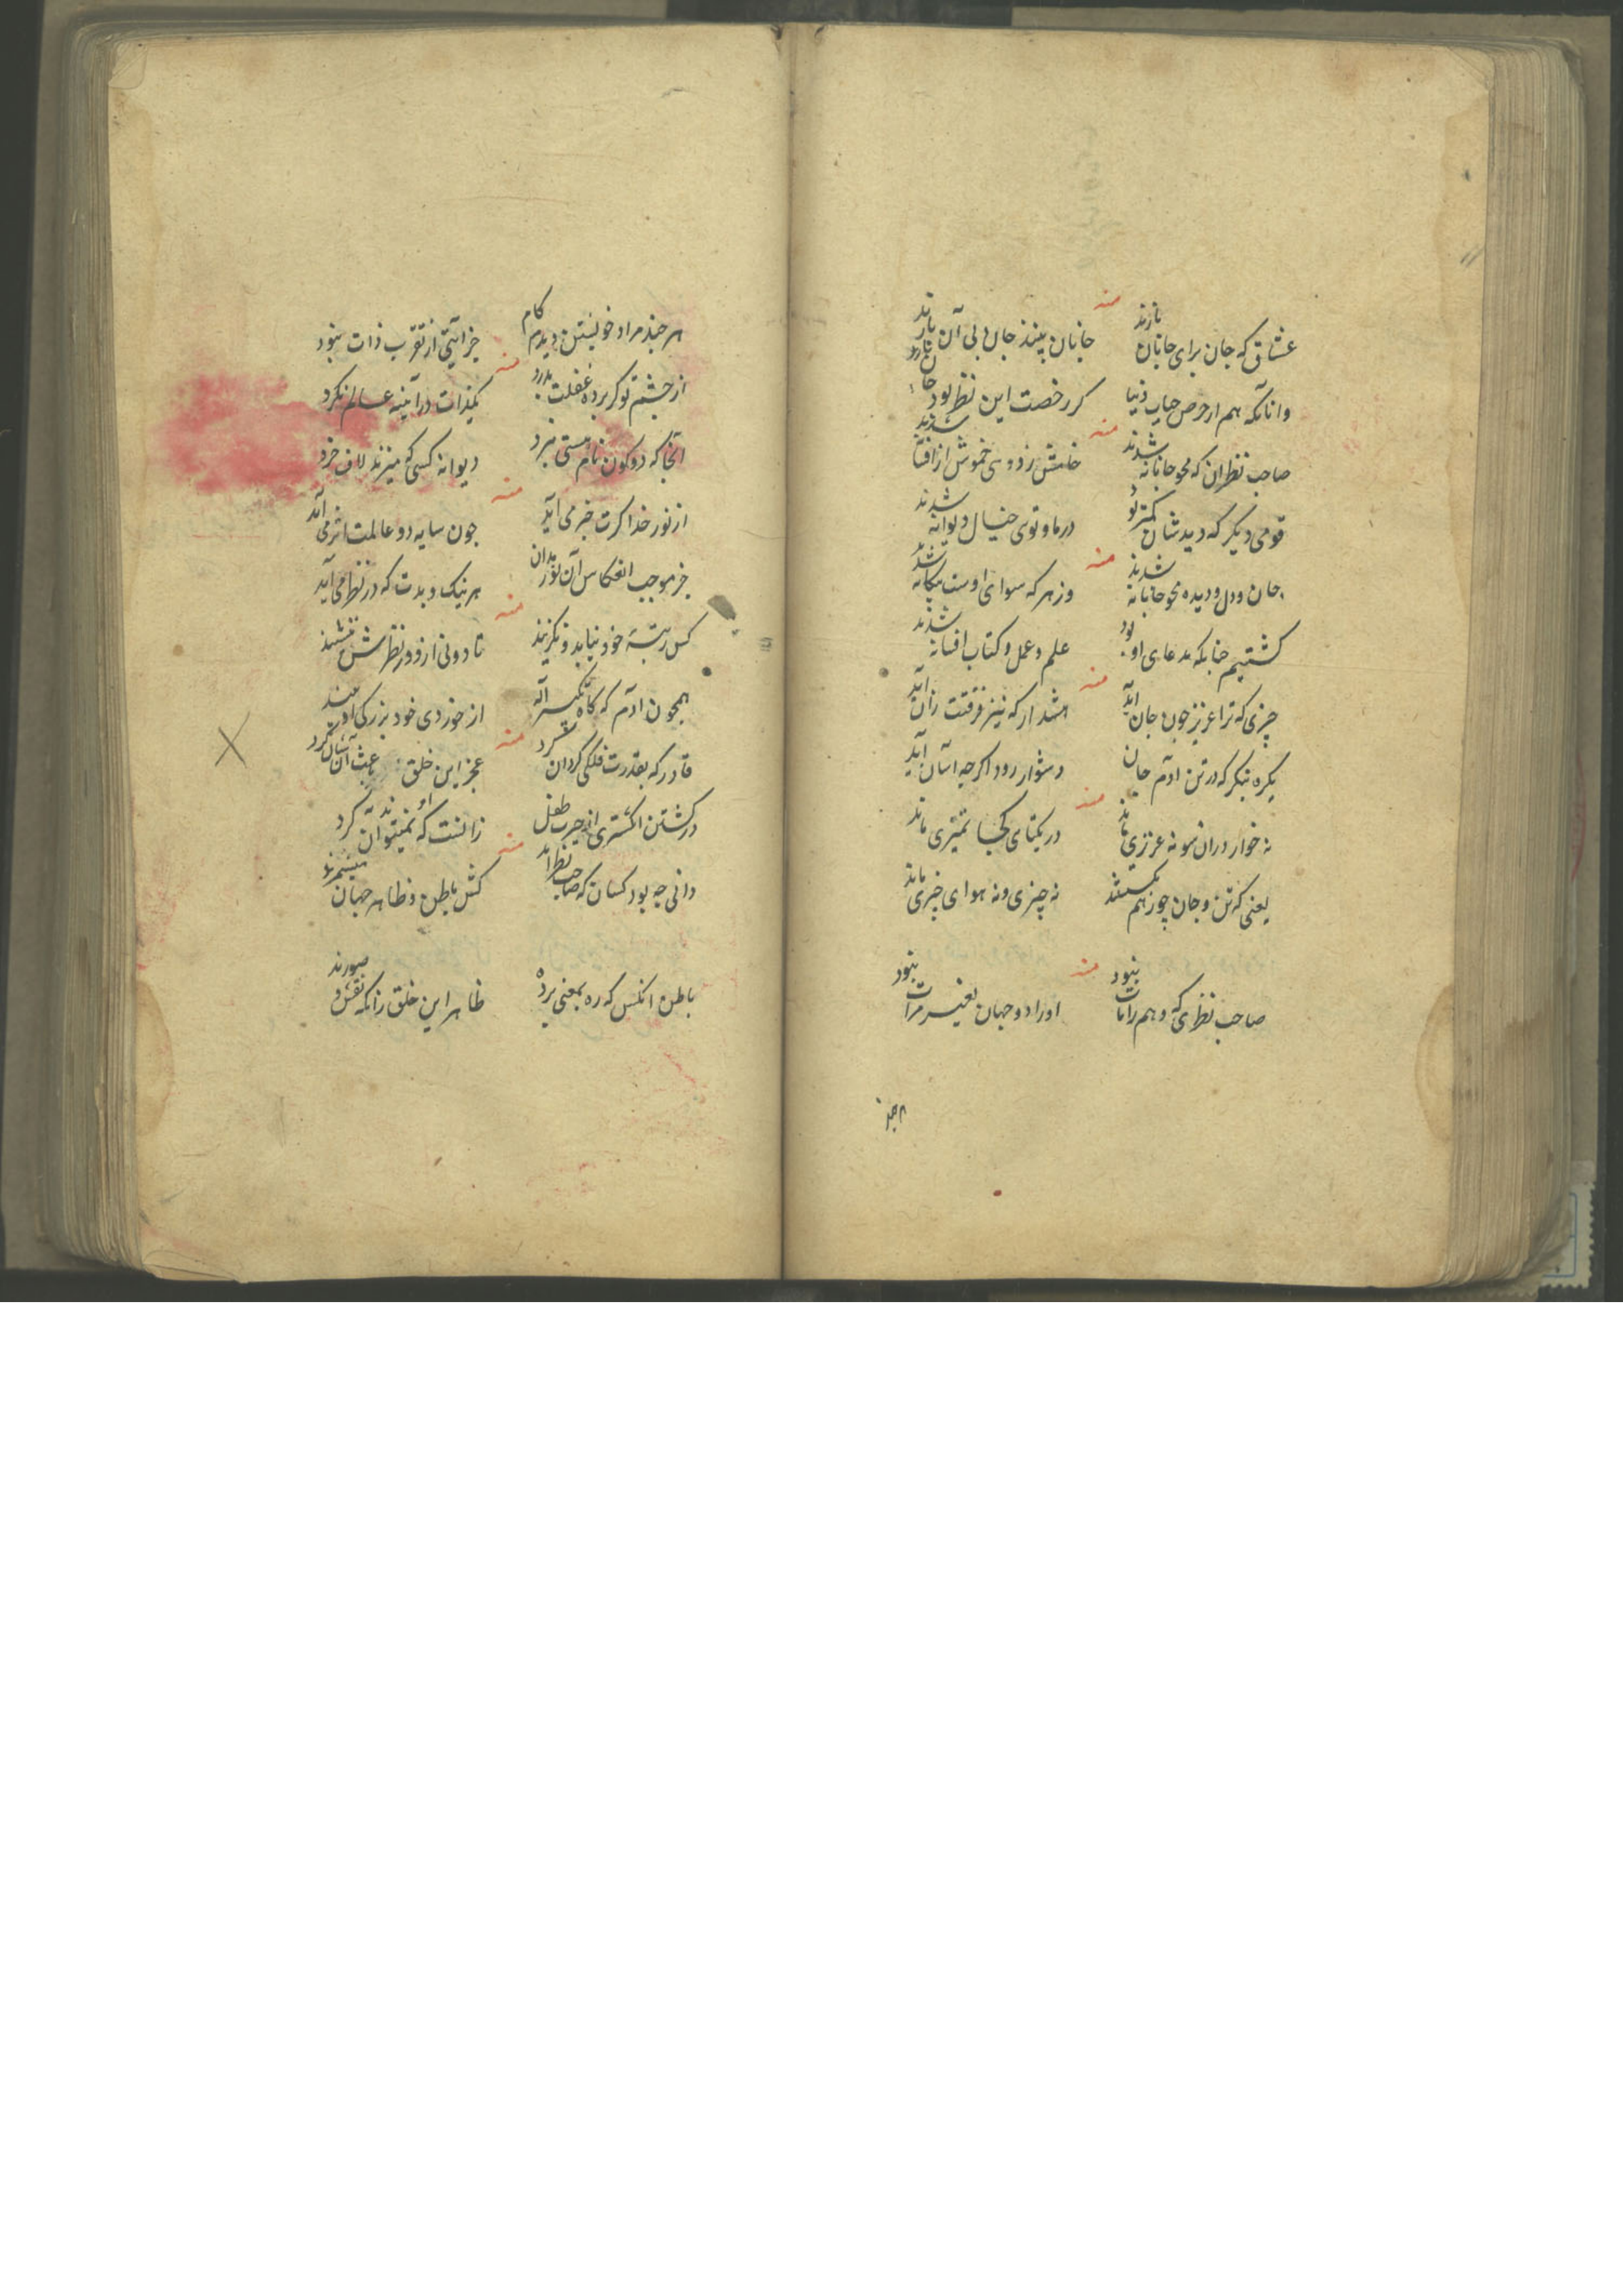 منه
عشاق که جان برای جانان بازند
جانان بینند جان بی آن بازند
وانانکه هم از حرص حیات دنیا
کر رخصت این نظر بود جان بازند
منه
صاحب نظران که محو جانانه شدند
خامش ز دوی خموش از افسانه شدند
قومی دیکر که دیدشان کمتر بود
در ما و توی خیال دیوانه شدند
منه
جان و دل و دیده محو جانانه شدند
وز هر که سوای اوست بیکانه شدند
کشتیم چنانکه مدعای او بود
علم و عمل و کتاب افسانه شدند
منه
چیزی که ترا عزیز چون جان آید
هشدار که نیز فرقتت زان آید
یکره بنکر که در تن آدم جان
دشوار رود اکرچه آسان آید
منه
نه خوار دران سو نه عزیزی ماند
در یکتای کجا تمیزی ماند
یعنی که تن و جان چو ز هم بکسستند
نه چیزی و نه هوای چیزی ماند
منه
صاحب نظری که وهم را مات نبود
او را دو جهان بغیر مرآت نبود
هر چند مراد خویشتن دیدم کام
جز آیتی از تقرب ذات نبود
منه
از چشم تو کر پرده غفلت بدرد
بجز ذات در آینه عالم نکرد
آنجا که دو کون نام هستی نبرد
دیوانه کسی که میزند لاف خرد
منه
از نور خدا کرت خبر می آید
چون سایه دو عالمت اثر می آید
جز موجب انعکاس آن نور بدان
هر نیک و بدت که در نظر می آید
منه
کس رتبه خود نیابد و نکزیند
تا دونی ازو در نظرش ننشیند
همچون آدم که کاه تکبیر اله
از خوردی خود بزرکی او بیند
منه
قادر که بقدرت فلکی کردان کرد
عجز این خلق باعث آن شان کرد
در کشتن انکشتری از حیرت طفل
زانست که او نمیتواند آن کرد
منه
دانی چه بود کسان که صاحب نظراند
کش باطن و ظاهر جهان میسپرند
باطن آنکس که ره بمعنی برده
ظاهر این خلق زانکه نقش و صورند